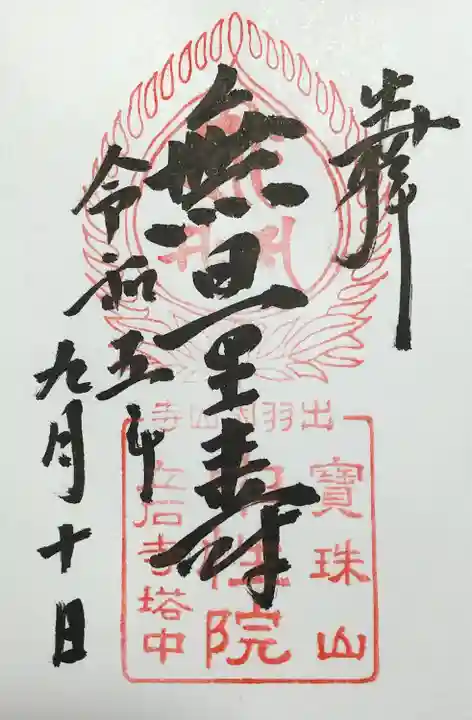 奉
無量壽
令和五年
九月十日
出羽國山寺
寶珠山
性院
立石寺塔中